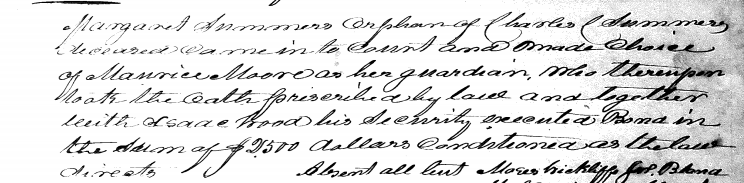 Margaret Summers Orphan of Charles C Summers
deceased Came in to Court and Made Choice
of Maurice Moore as her guardian, who thereupon
took the Oath prescribed by law and together
with Isaac Wood his Security executed Bond in
the Sum of $2500 dollars Conditioned as the law
directs Absent all but Moses